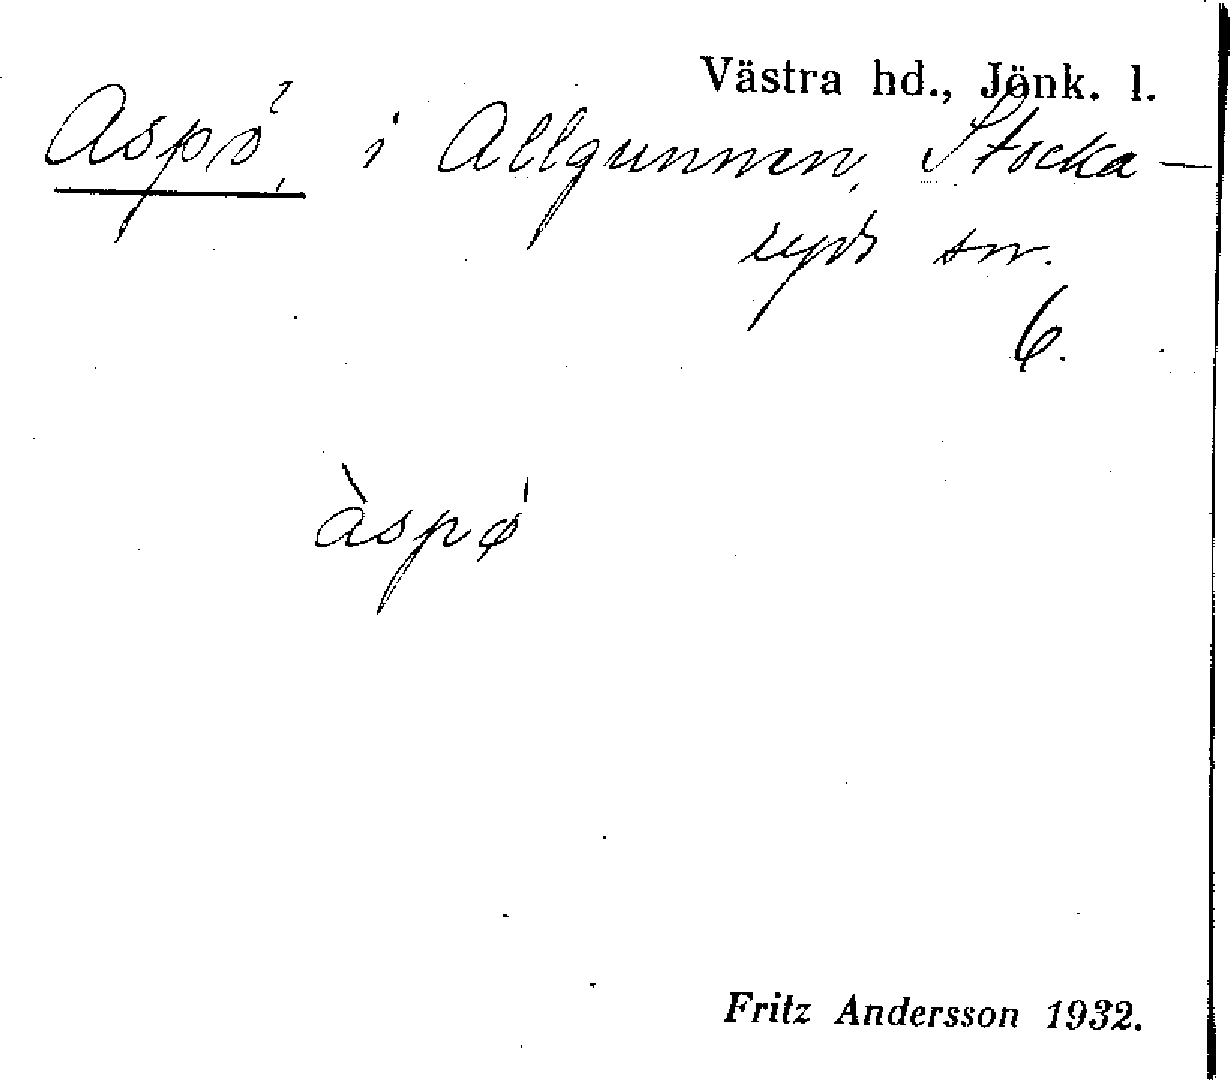 Västra hd., Jönk. l.
Aspö, i Allgunnen, Stocka-
ryds sn.
6.
àspø
Fritz Andersson 1932.